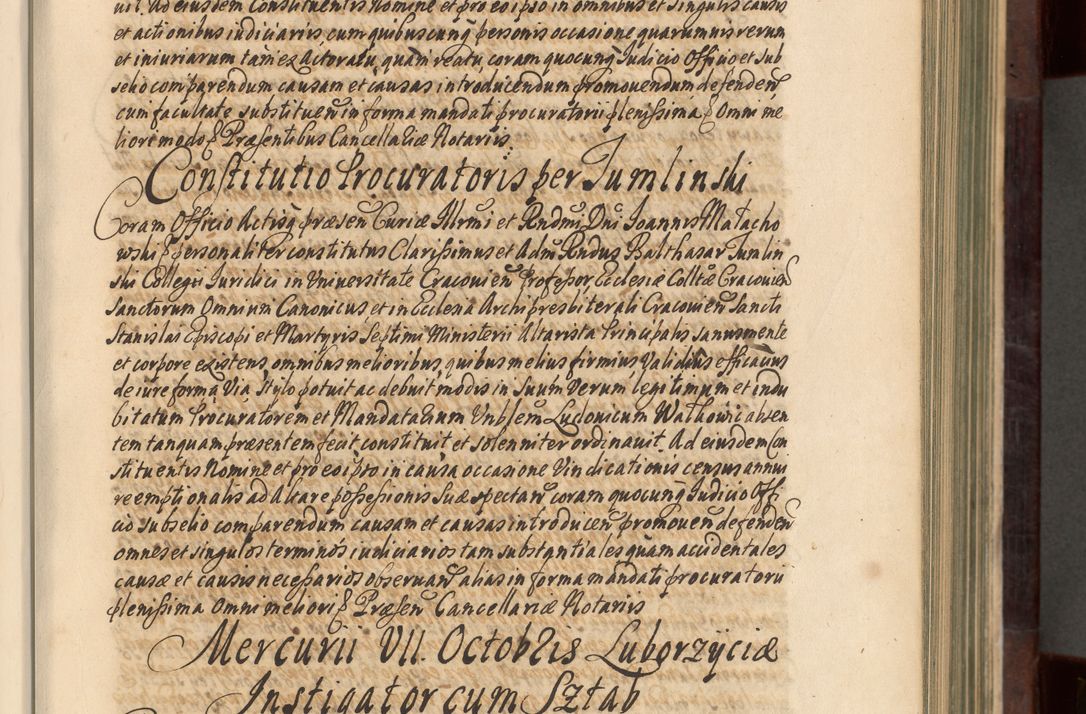 uit. Ad eiusdem Constituentis nomine et pro eo ipso in omnibus et singulis causis
et actionibus iudiciariis cum quibuscunq personis occasione quarumvis rerum
et iniuriarum tam ex Actoratu, quam reatu, coram quocunq Iudicio Officio et Sub
selio comparendum causam et causas introducendum promovendum defenden
cum facultate substituen in forma mandati procuratorii plenissima p Omni me
liori modo p Præsentibus Cancellariæ Notariis.
Constitutio Procuratoris per Tumlinski
Coram Officio Actisq præsen Curiæ Illrmi et Rndmi Dni Joannis Małacho
wski p personaliter constitutus Clarissimus et Adm Rndus Balthasar Tumlin
ski Collegii Iuridici in Universitate Cracovien Professor, Ecclesiæ Colltæ Cracovien
Sanctorum Omnium Canonicus et in Ecclesia Archipresbiterali Cracovien Sancti
Stanislai Episcopi et Martyris Septimi Ministerii Altarista Principalis sanus mente
et corpore existens, omnibus melioribus, quibus melius firmius validius efficacius
de iure forma Via, stylo potuit ac debuit modis in Suum Verum legitimum et indu
bitatum Procuratorem et Mandatarium Vnblem Ludovicum Walkowic absen
tem tanquam præsentem fecit constituit et solenniter ordinavit. Ad eiusdem Con
stituentis Nomine et pro eo ipso in causa occasione Vindicationis census annui
reemptionalis ad Altare possessionis Suæ spectan coram quocunq Iudicio Offi
cio subselio comparendum causam et causas introducen promoven defenden
omnes et singulos terminos iudiciarios tam substantiales quam accidentales
causæ et causis necessarios observan alias in forma mandati procuratorii
plenissima Omni meliori p Præsen Cancellariæ Notariis
Mercurii VII. Octobris Luborzyciæ
Instigator cum Sztab